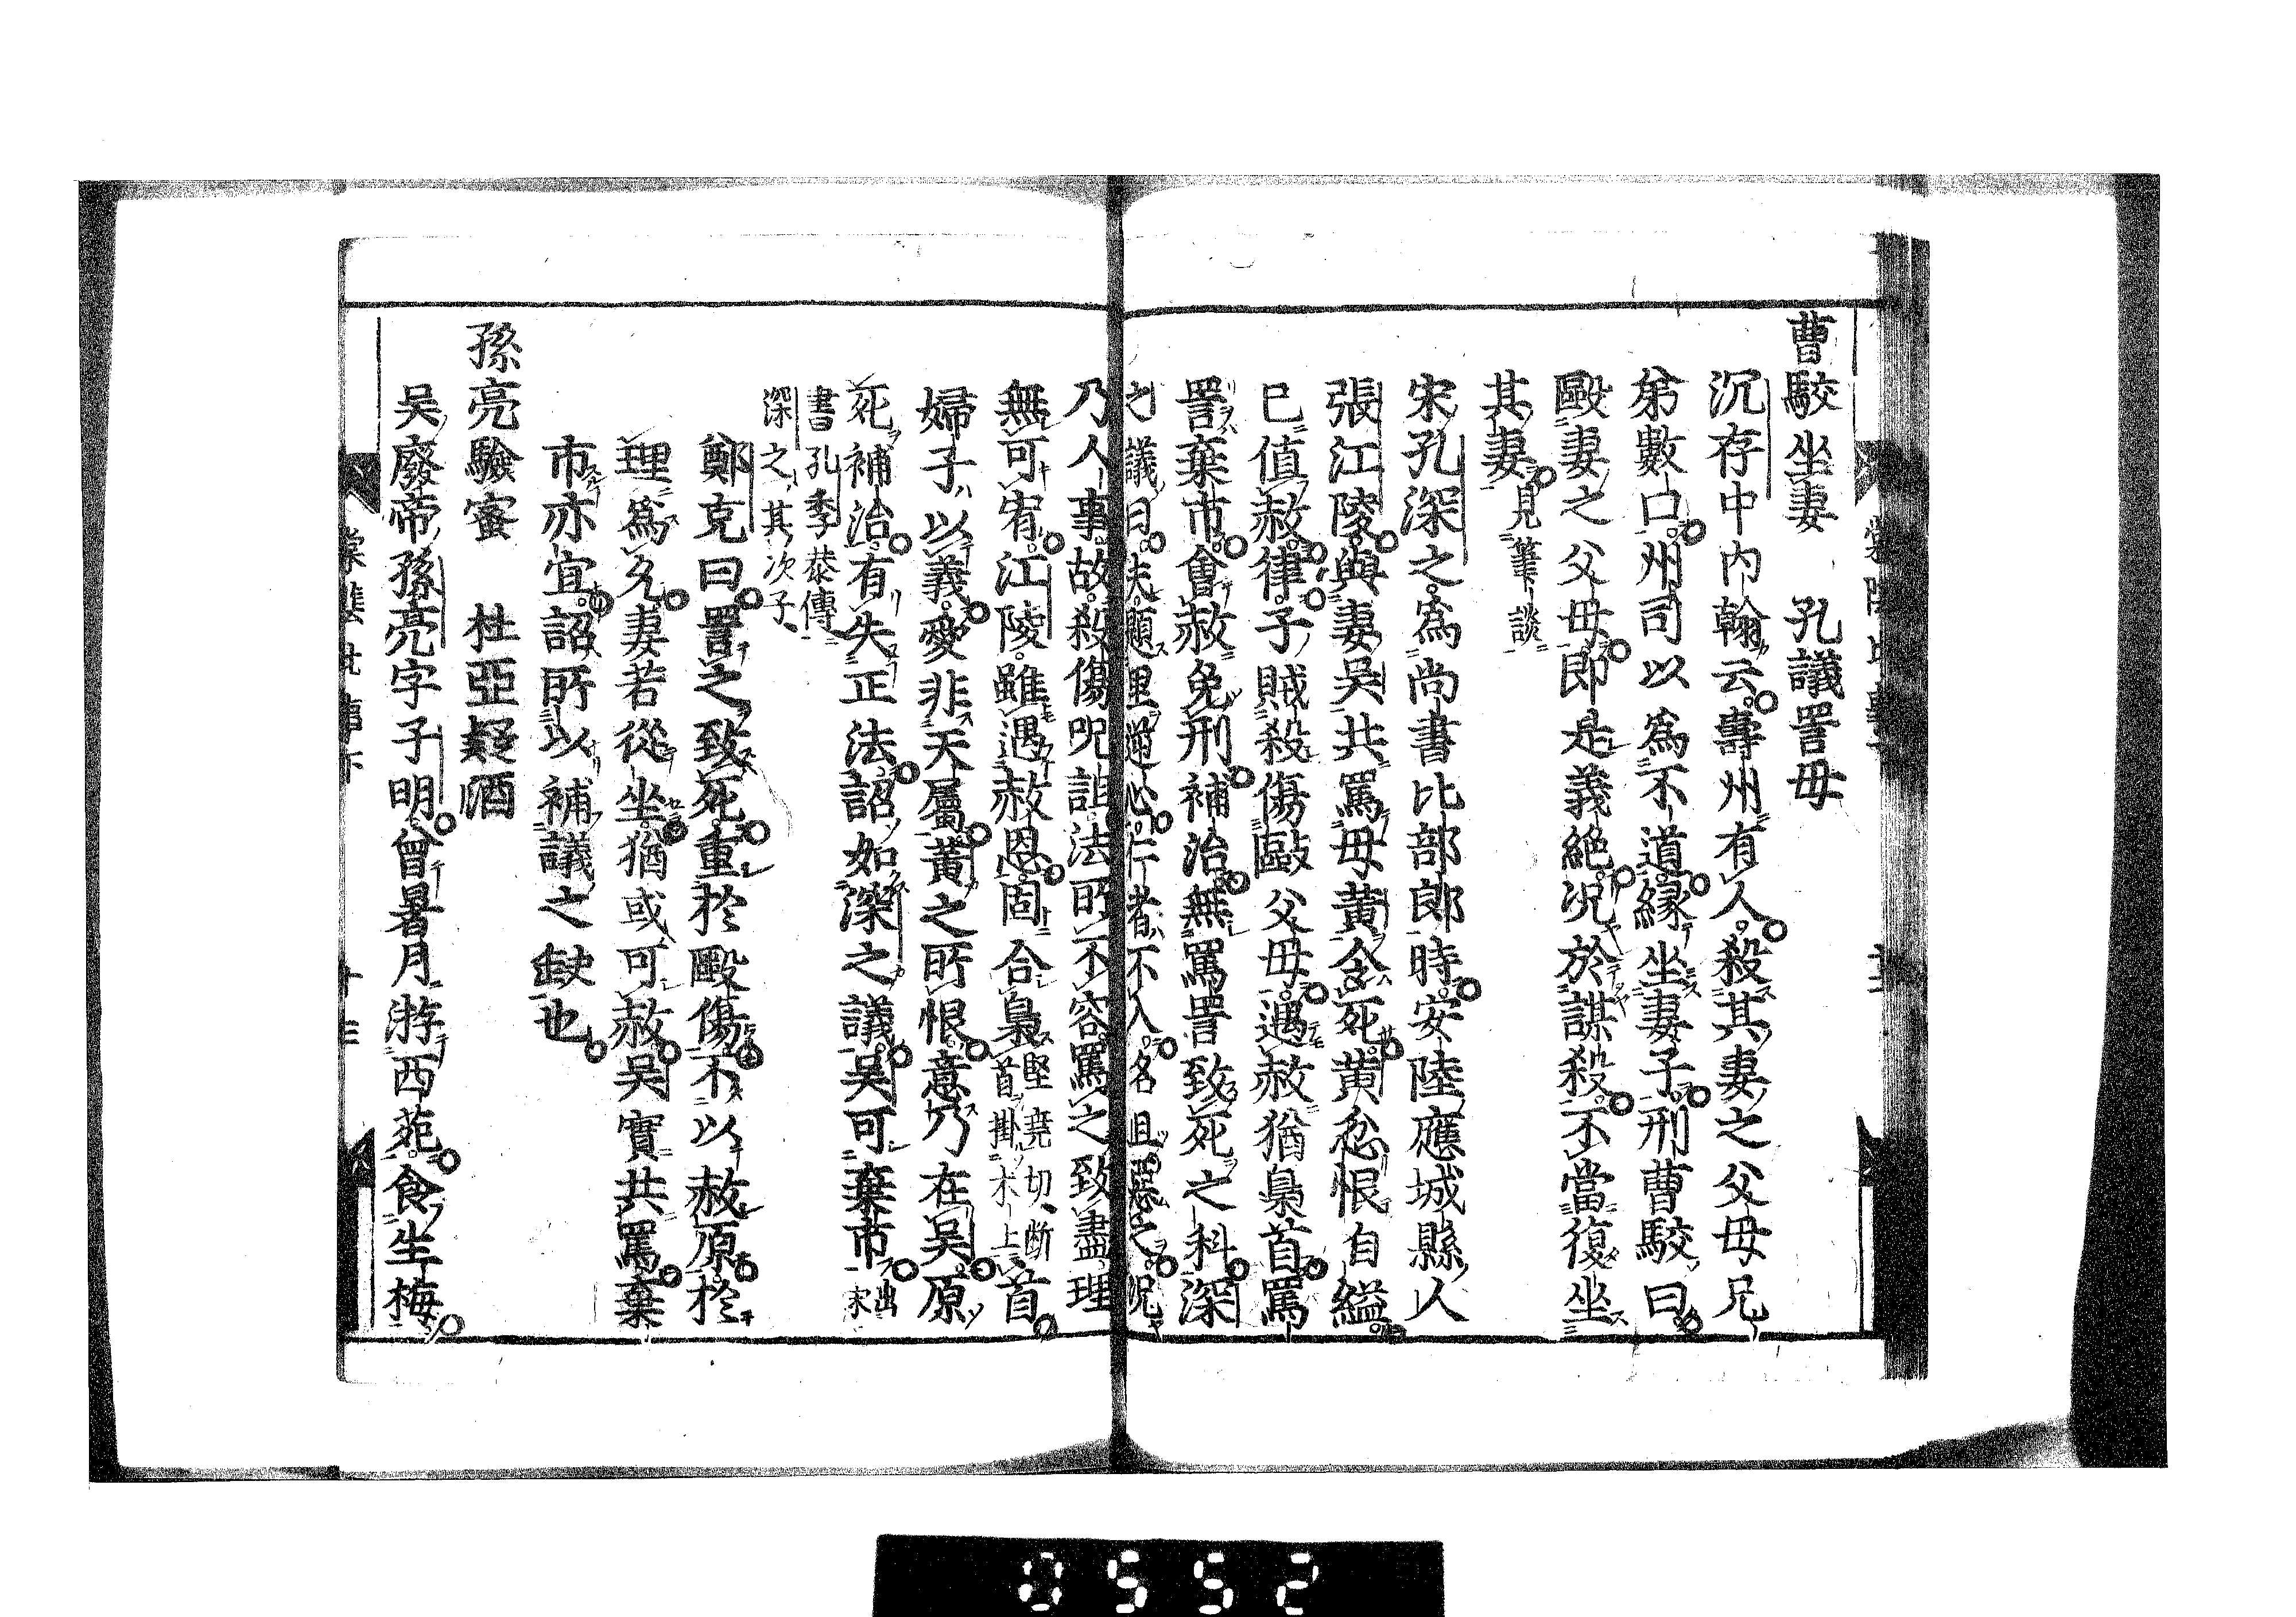 曹駮坐妻　孔議詈母
沉存中内翰云壽州有人殺其妻之父母兄
弟數口州司以爲不道縁坐妻子刑曹駮曰
毆妻之父母即是義絶况於謀殺不當復坐
其妻見筆談
宋孔深之爲尚書比部郎時安陸應城縣人
張江陵與妻呉共罵母黄令死黄忿恨自縊
已值赦律子賊殺傷毆父母遇赦猶梟首罵
詈棄市會赦免刑補治無罵詈致死之科深
之議曰夫題里逆心仁者不入名且惡之况
乃人事故殺傷呪詛法所不容罵之致盡理
無可宥江陵雖遇赦恩固合梟堅堯切断首掛木上首
婦子以義愛非天屬黄之所恨意乃在呉原
死補治有失正法詔如深之議呉可棄市出宋
書孔季恭傳
深之其次子
鄭克曰詈之致死重於毆傷不以赦原於
理爲允妻若從坐猶或可赦呉實共罵棄
市亦宜詔所以補議之缺也
孫亮驗蜜　杜亞疑酒
呉廢帝孫亮字子明曾暑月游西苑食生梅
0552